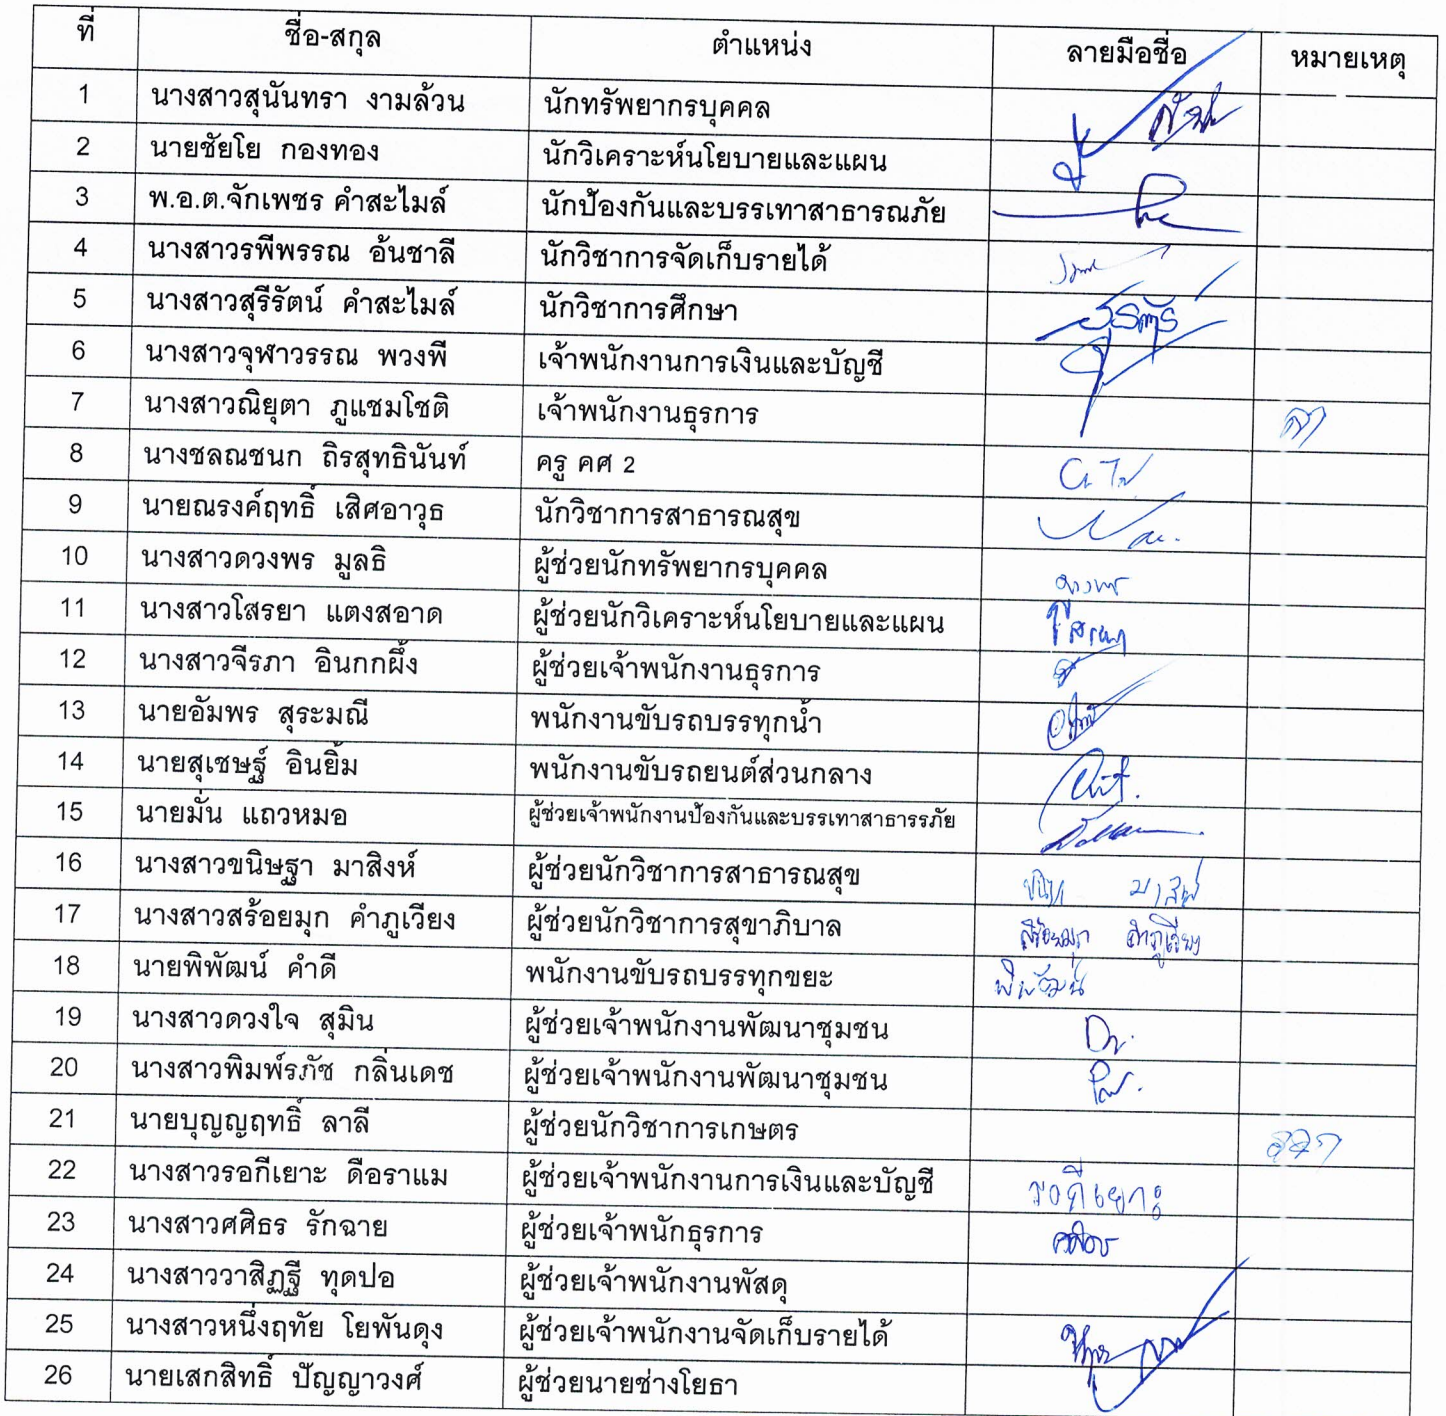 ที่ ชื่อ-สกุล ตำแหน่ง ลายมือชื่อ หมายเหตุ
1 นางสาวสุนันทรา งามล้วน นักทรัพยากรบุคคล
2 นายชัยโย กองทอง นักวิเคราะห์นโยบายและแผน
3 พ.อ.ต.จักเพชร คำสะไมล์ นักป้องกันและบรรเทาสาธารณภัย
4 นางสาวรพีพรรณ อ้นชาลี นักวิชาการจัดเก็บรายได้
5 นางสาวสุรีรัตน์ คำสะไมล์ นักวิชาการศึกษา
6 นางสาวจุฬาวรรณ พวงพี เจ้าพนักงานการเงินและบัญชี
7 นางสาวณิยุตา ภูแชมโชติ เจ้าพนักงานธุรการ ลา
8 นางชลณชนก ถิรสุทธินันท์ ครู คศ 2
9 นายณรงค์ฤทธิ์ เสิศอาวุธ นักวิชาการสาธารณสุข
10 นางสาวดวงพร มูลธิ ผู้ช่วยนักทรัพยากรบุคคล ดวงพร
11 นางสาวโสรยา แตงสอาด ผู้ช่วยนักวิเคราะห์นโยบายและแผน
12 นางสาวจีรภา อินกกผึ้ง ผู้ช่วยเจ้าพนักงานธุรการ
13 นายอัมพร สุระมณี พนักงานขับรถบรรทุกน้ำ
14 นายสุเชษฐ์ อินยิ้ม พนักงานขับรถยนต์ส่วนกลาง
15 นายมั่น แถวหมอ ผู้ช่วยเจ้าพนักงานป้องกันและบรรเทาสาธารรภัย
16 นางสาวขนิษฐา มาสิงห์ ผู้ช่วยนักวิชาการสาธารณสุข
17 นางสาวสร้อยมุก คำภูเวียง ผู้ช่วยนักวิชาการสุขาภิบาล สร้อยมุก คำภูเวียง
18 นายพิพัฒน์ คำดี พนักงานขับรถบรรทุกขยะ พิพัฒน์
19 นางสาวดวงใจ สุมิน ผู้ช่วยเจ้าพนักงานพัฒนาชุมชน
20 นางสาวพิมพ์รภัช กลิ่นเดช ผู้ช่วยเจ้าพนักงานพัฒนาชุมชน
21 นายบุญญฤทธิ์ ลาลี ผู้ช่วยนักวิชาการเกษตร
22 นางสาวรอกีเยาะ ดือราแม ผู้ช่วยเจ้าพนักงานการเงินและบัญชี รอกีเยาะ
23 นางสาวศศิธร รักฉาย ผู้ช่วยเจ้าพนักธุรการ ศศิธร
24 นางสาววาสิฏฐี ทุดปอ ผู้ช่วยเจ้าพนักงานพัสดุ
25 นางสาวหนึ่งฤทัย โยพันดุง ผู้ช่วยเจ้าพนักงานจัดเก็บรายได้
26 นายเสกสิทธิ์ ปัญญาวงศ์ ผู้ช่วยนายช่างโยธา